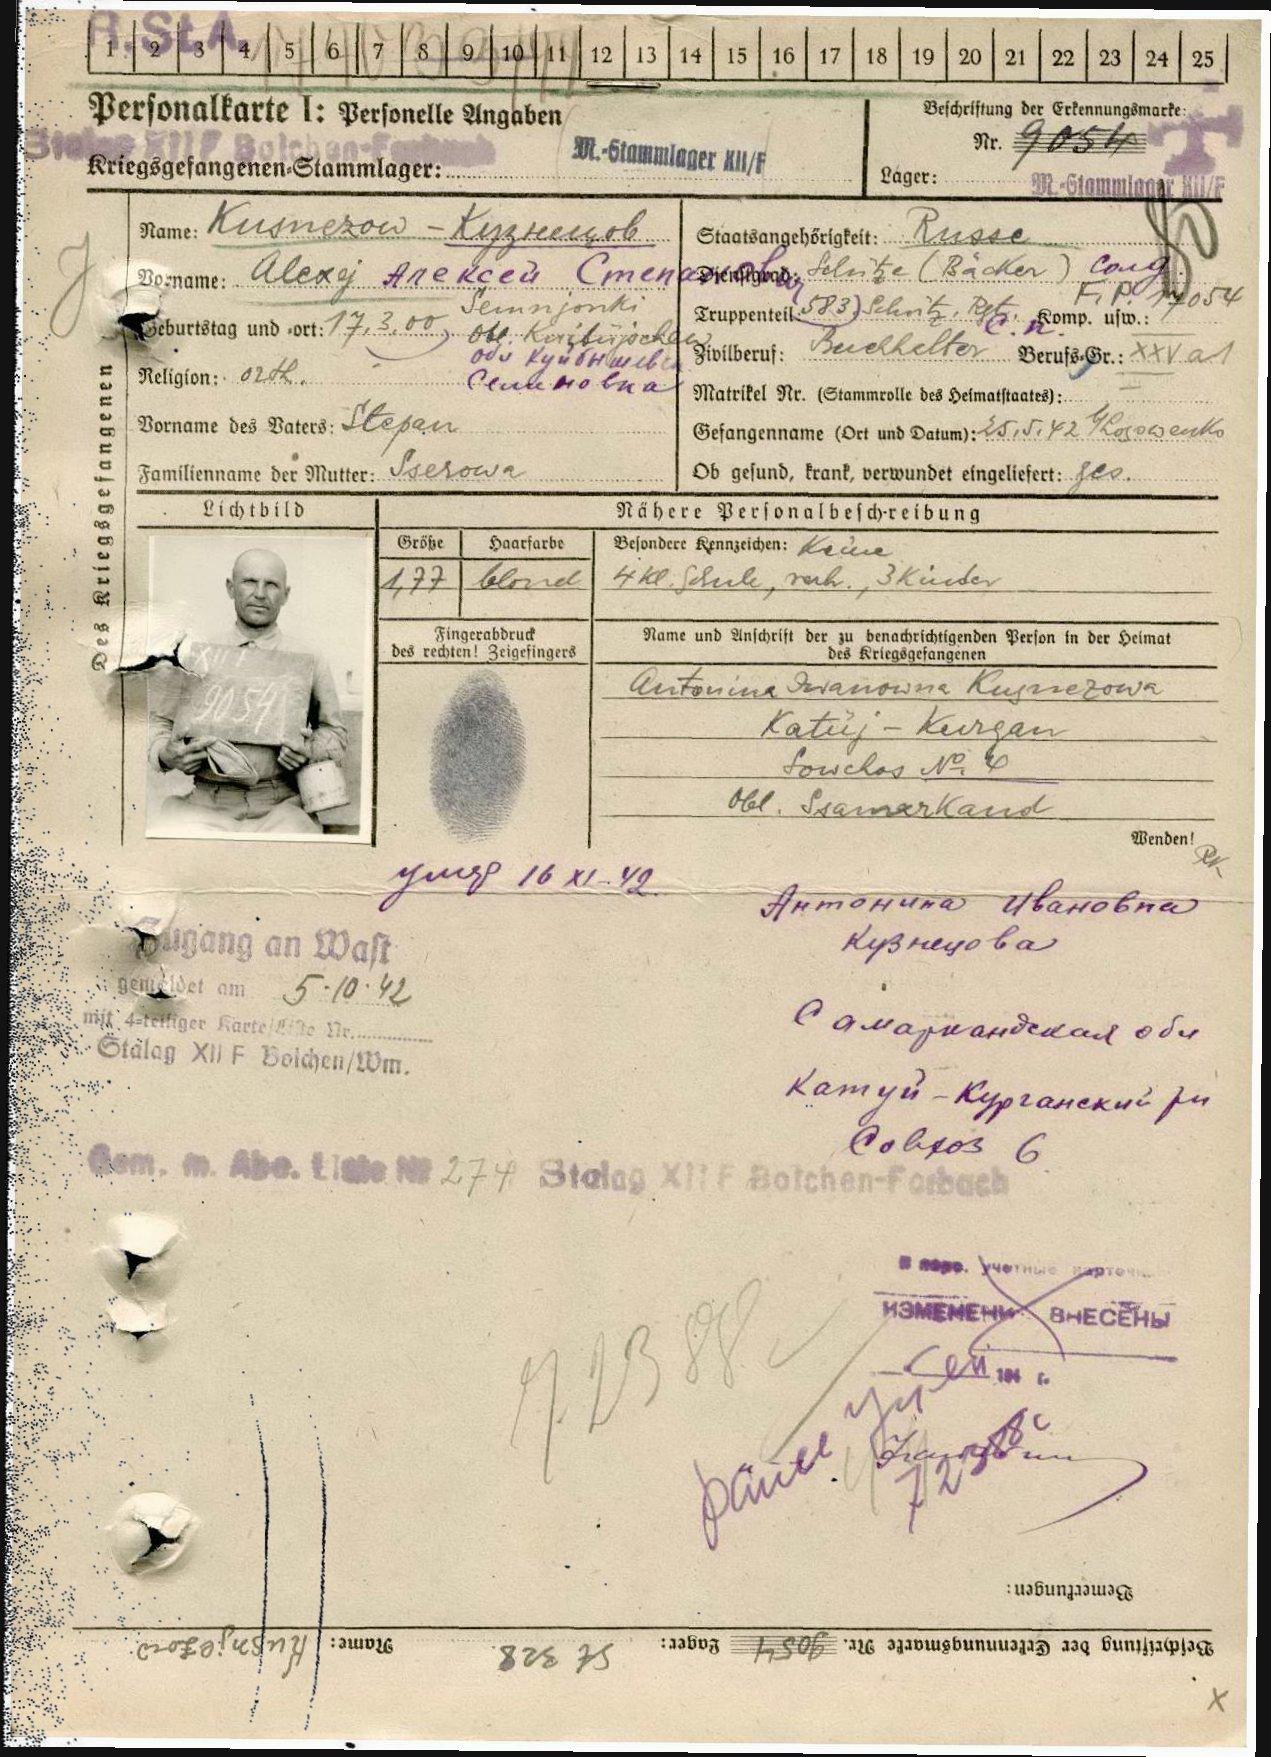 R.St.A.
1 2 3 4 5 6 7 8 9 10 11 12 13 14 15 16 17 18 19 20 21 22 23 24 25
Personalkarte I: Personelle Angaben
Beschriftung der Erkennungsmarke:
Nr. 9054
Stalag XII F Bolchen-Forbach
Kriegsgefangenen-Stammlager: M.-Stammlager XII/F
Lager: M.-Stammlager XII/F
Des Kriegsgefangenen
Name: Kusnezow – Кузнецов
Vorname: Alexej Алексей Степанович
Geburtstag und -ort: 17.3.00 Semnjonki
Obl.
обл Куйбышевск
Семиновка
Religion: orth.
Vorname des Vaters: Stepan
Familienname der Mutter: Sserowa
Staatsangehörigkeit: Russe
Dienstgrad: Schütze (Bäcker) солд.
F.P. 17054
Truppenteil: 583) Schütz. Rgt. Komp. usw.:
с.п.
Zivilberuf: Buchhalter Berufs-Gr.: XXV a1
Matrikel Nr. (Stammrolle des Heimatstaates):
Gefangenname (Ort und Datum): 25.5.42 Losowenko
Ob gesund, krank, verwundet eingeliefert: ges.
Lichtbild
Nähere Personalbeschreibung
Größe Haarfarbe
1,77 blond
Besondere Kennzeichen: Keine
4 Kl. Schule, verh., 3 Kinder
XII F
9054
Fingerabdruck
des rechten! Zeigefingers
Name und Anschrift der zu benachrichtigenden Person in der Heimat
des Kriegsgefangenen
Antonina Iwanowna Kusnezowa
Katüj – Kurgan
Sowchos No. 6
Obl. Ssamarkand
Wenden!
умер 16 XI-42
Антонина Ивановна
Кузнецова
Самаркандская обл
Катуй-Курганский рн
Совхоз 6
Zugang an Wast
gemeldet am 5.10.42
mit 4-teiliger Karte/Liste Nr.
Stalag XII F Bolchen/Wm.
Gem. m. Abg. Liste № 274 Stalag XII F Bolchen-Forbach
В перс. учетные карточки
ИЗМЕНЕНИ ВНЕСЕНЫ
194 г.
72388
ранее уч
7238
Bemerkungen:
Beschriftung der Erkennungsmarke Nr. 9054 Lager: St 328 Name: Kusnjezow
x